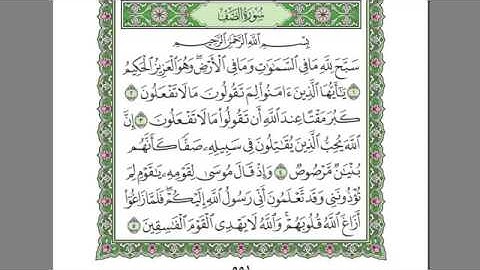 سُورَةُ الصَّفِّ
بِسْمِ اللَّهِ الرَّحْمَٰنِ الرَّحِيمِ
سَبَّحَ لِلَّهِ مَا فِي السَّمَٰوَٰتِ وَمَا فِي الْأَرْضِ ۖ وَهُوَ الْعَزِيزُ الْحَكِيمُ
۝١ يَٰٓأَيُّهَا الَّذِينَ ءَامَنُوا۟ لِمَ تَقُولُونَ مَا لَا تَفْعَلُونَ ۝٢
كَبُرَ مَقْتًا عِندَ اللَّهِ أَن تَقُولُوا۟ مَا لَا تَفْعَلُونَ ۝٣ إِنَّ
اللَّهَ يُحِبُّ الَّذِينَ يُقَٰتِلُونَ فِي سَبِيلِهِ صَفًّا كَأَنَّهُم
بُنْيَٰنٌ مَّرْصُوصٌ ۝٤ وَإِذْ قَالَ مُوسَىٰ لِقَوْمِهِ يَٰقَوْمِ لِمَ
تُؤْذُونَنِي وَقَد تَّعْلَمُونَ أَنِّي رَسُولُ اللَّهِ إِلَيْكُمْ ۖ فَلَمَّا زَاغُوٓا۟
أَزَاغَ اللَّهُ قُلُوبَهُمْ ۚ وَاللَّهُ لَا يَهْدِي الْقَوْمَ الْفَٰسِقِينَ ۝٥
٥٥١